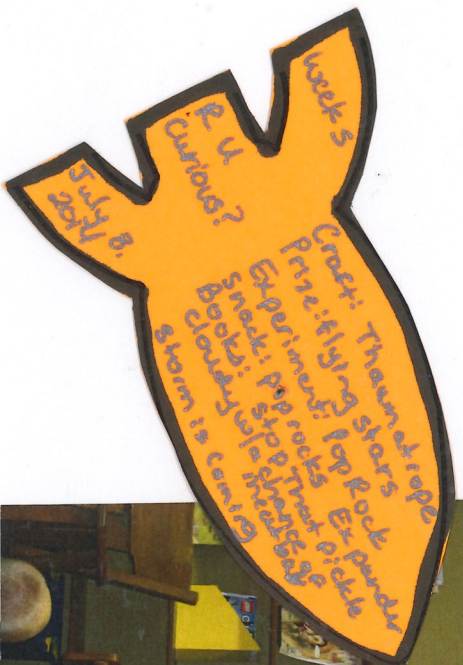 Week 5
R U
Curious?
July 8,
2014
Craft: Thaumatrope
Prize: flying stars
Experiment: Pop Rock Expander
Snack: pop rocks
Books: Stop That Pickle
Cloudy w/a change of meatball
Storm is coming